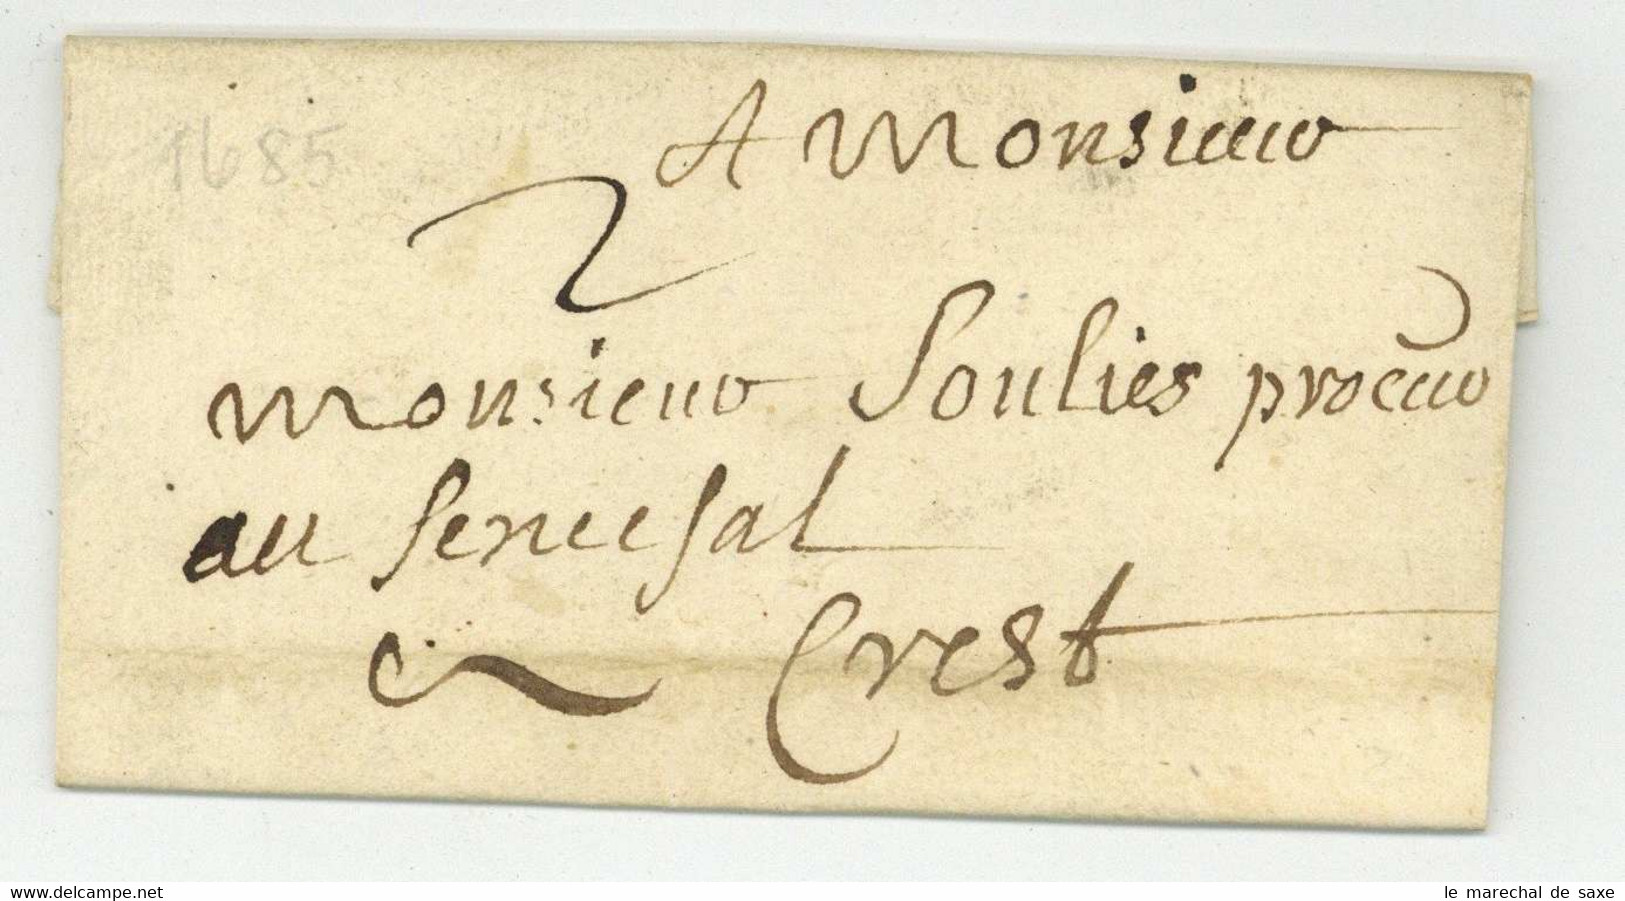 1685
A Monsieur
2
Monsieur Soulies proceur
au Senesal
Crest
www.delcampe.net
le marechal de saxe